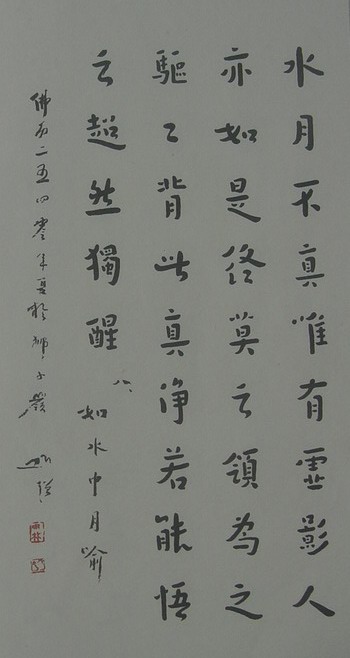 水月不真唯有虛影人
亦如是終莫之領為之
驅々背此真淨若能悟
之超然獨醒
八、如水中月喻
佛历二五四零年夏於獅子巖